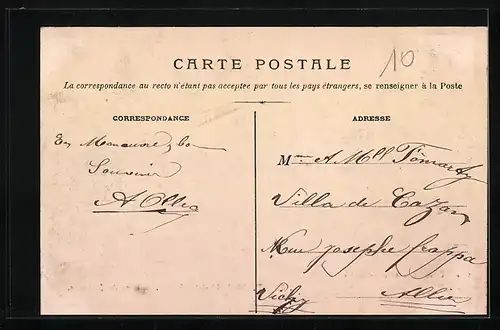 10
CARTE POSTALE
La correspondance au recto n'étant pas acceptée par tous les pays étrangers, se renseigner à la Poste
CORRESPONDANCE
ADRESSE
En Manœuvre, bon
Souvenir
M
Villa de
Rue Josephe Frappa
Vichy
Allier